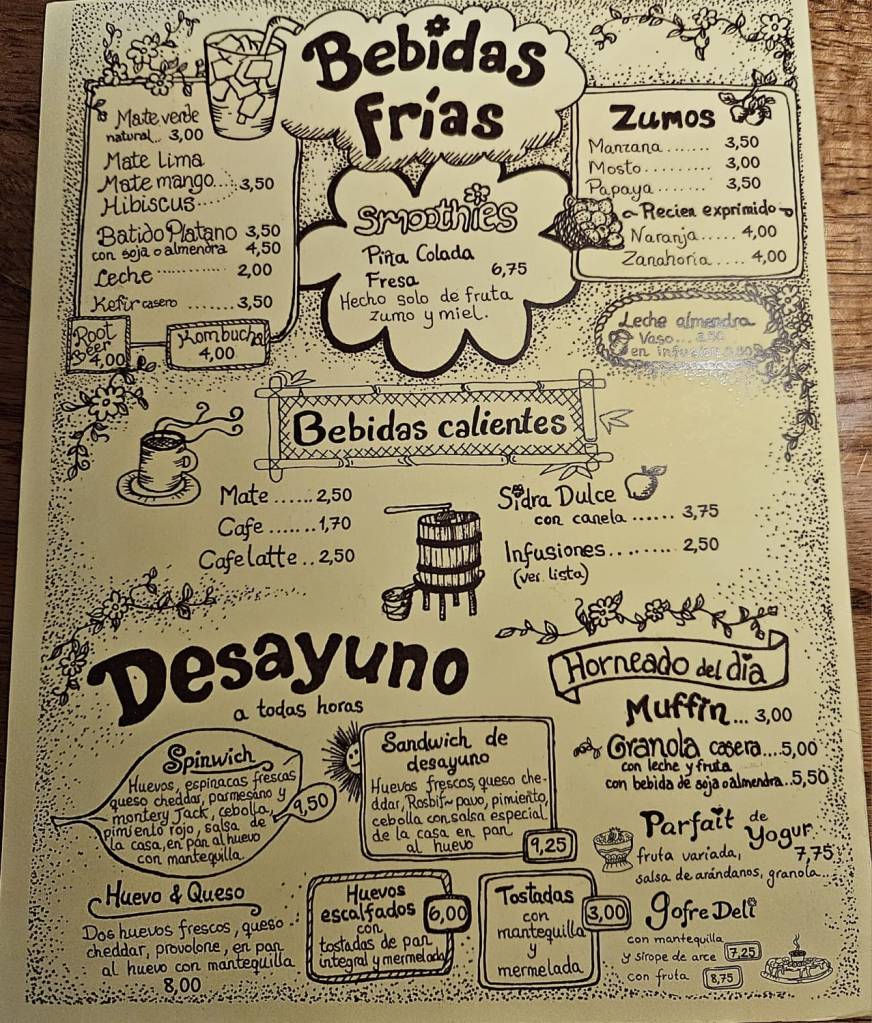 Bebidas
frías
Mate verde
natural.. 3,00
Mate Lima
Mate mango....3,50
Hibiscus.....
Batido Platano 3,50
con soja o almendra 4,50
Leche ............ 2,00
Kefir casero ....... 3,50
Root
Beer
4,00
Kombucha
4,00
Smoothies
Piña Colada
Fresa 6,75
Hecho solo de fruta
zumo y miel.
Zumos
Manzana ....... 3,50
Mosto .......... 3,00
Papaya ........ 3,50
Recien exprimido
Naranja..... 4,00
Zanahoria .... 4,00
Leche almendra
Vaso...
en
Bebidas calientes
Mate ......2,50
Cafe .......1,70
Cafe latte .. 2,50
Sidra Dulce
con canela ...... 3,75
Infusiones......... 2,50
(ver lista)
Desayuno
a todas horas
Spinwich
Huevos, espinacas frescas
queso cheddar, parmesano y
montery Jack, cebolla,
pimiento rojo, salsa de
la casa, en pan al huevo
con mantequilla.
9,50
Sandwich de
desayuno
Huevos frescos, queso che-
ddar, Rosbif~pavo, pimiento,
cebolla con salsa especial
de la casa en pan
al huevo
9,25
Huevo & Queso
Dos huevos frescos, queso
cheddar, provolone, en pan
al huevo con mantequilla
8,00
Huevos
escalfados
con
tostadas de pan
integral y mermelada
6,00
Tostadas
con
mantequilla
y
mermelada
3,00
Horneado del día
Muffin... 3,00
Granola casera....5,00
con leche y fruta
con bebida de soja o almendra..5,50
Parfait de
Yogur
fruta variada, 7,75
salsa de arándanos, granola...
Gofre Deli
con mantequilla
y sirope de arce 7,25
con fruta 8,75